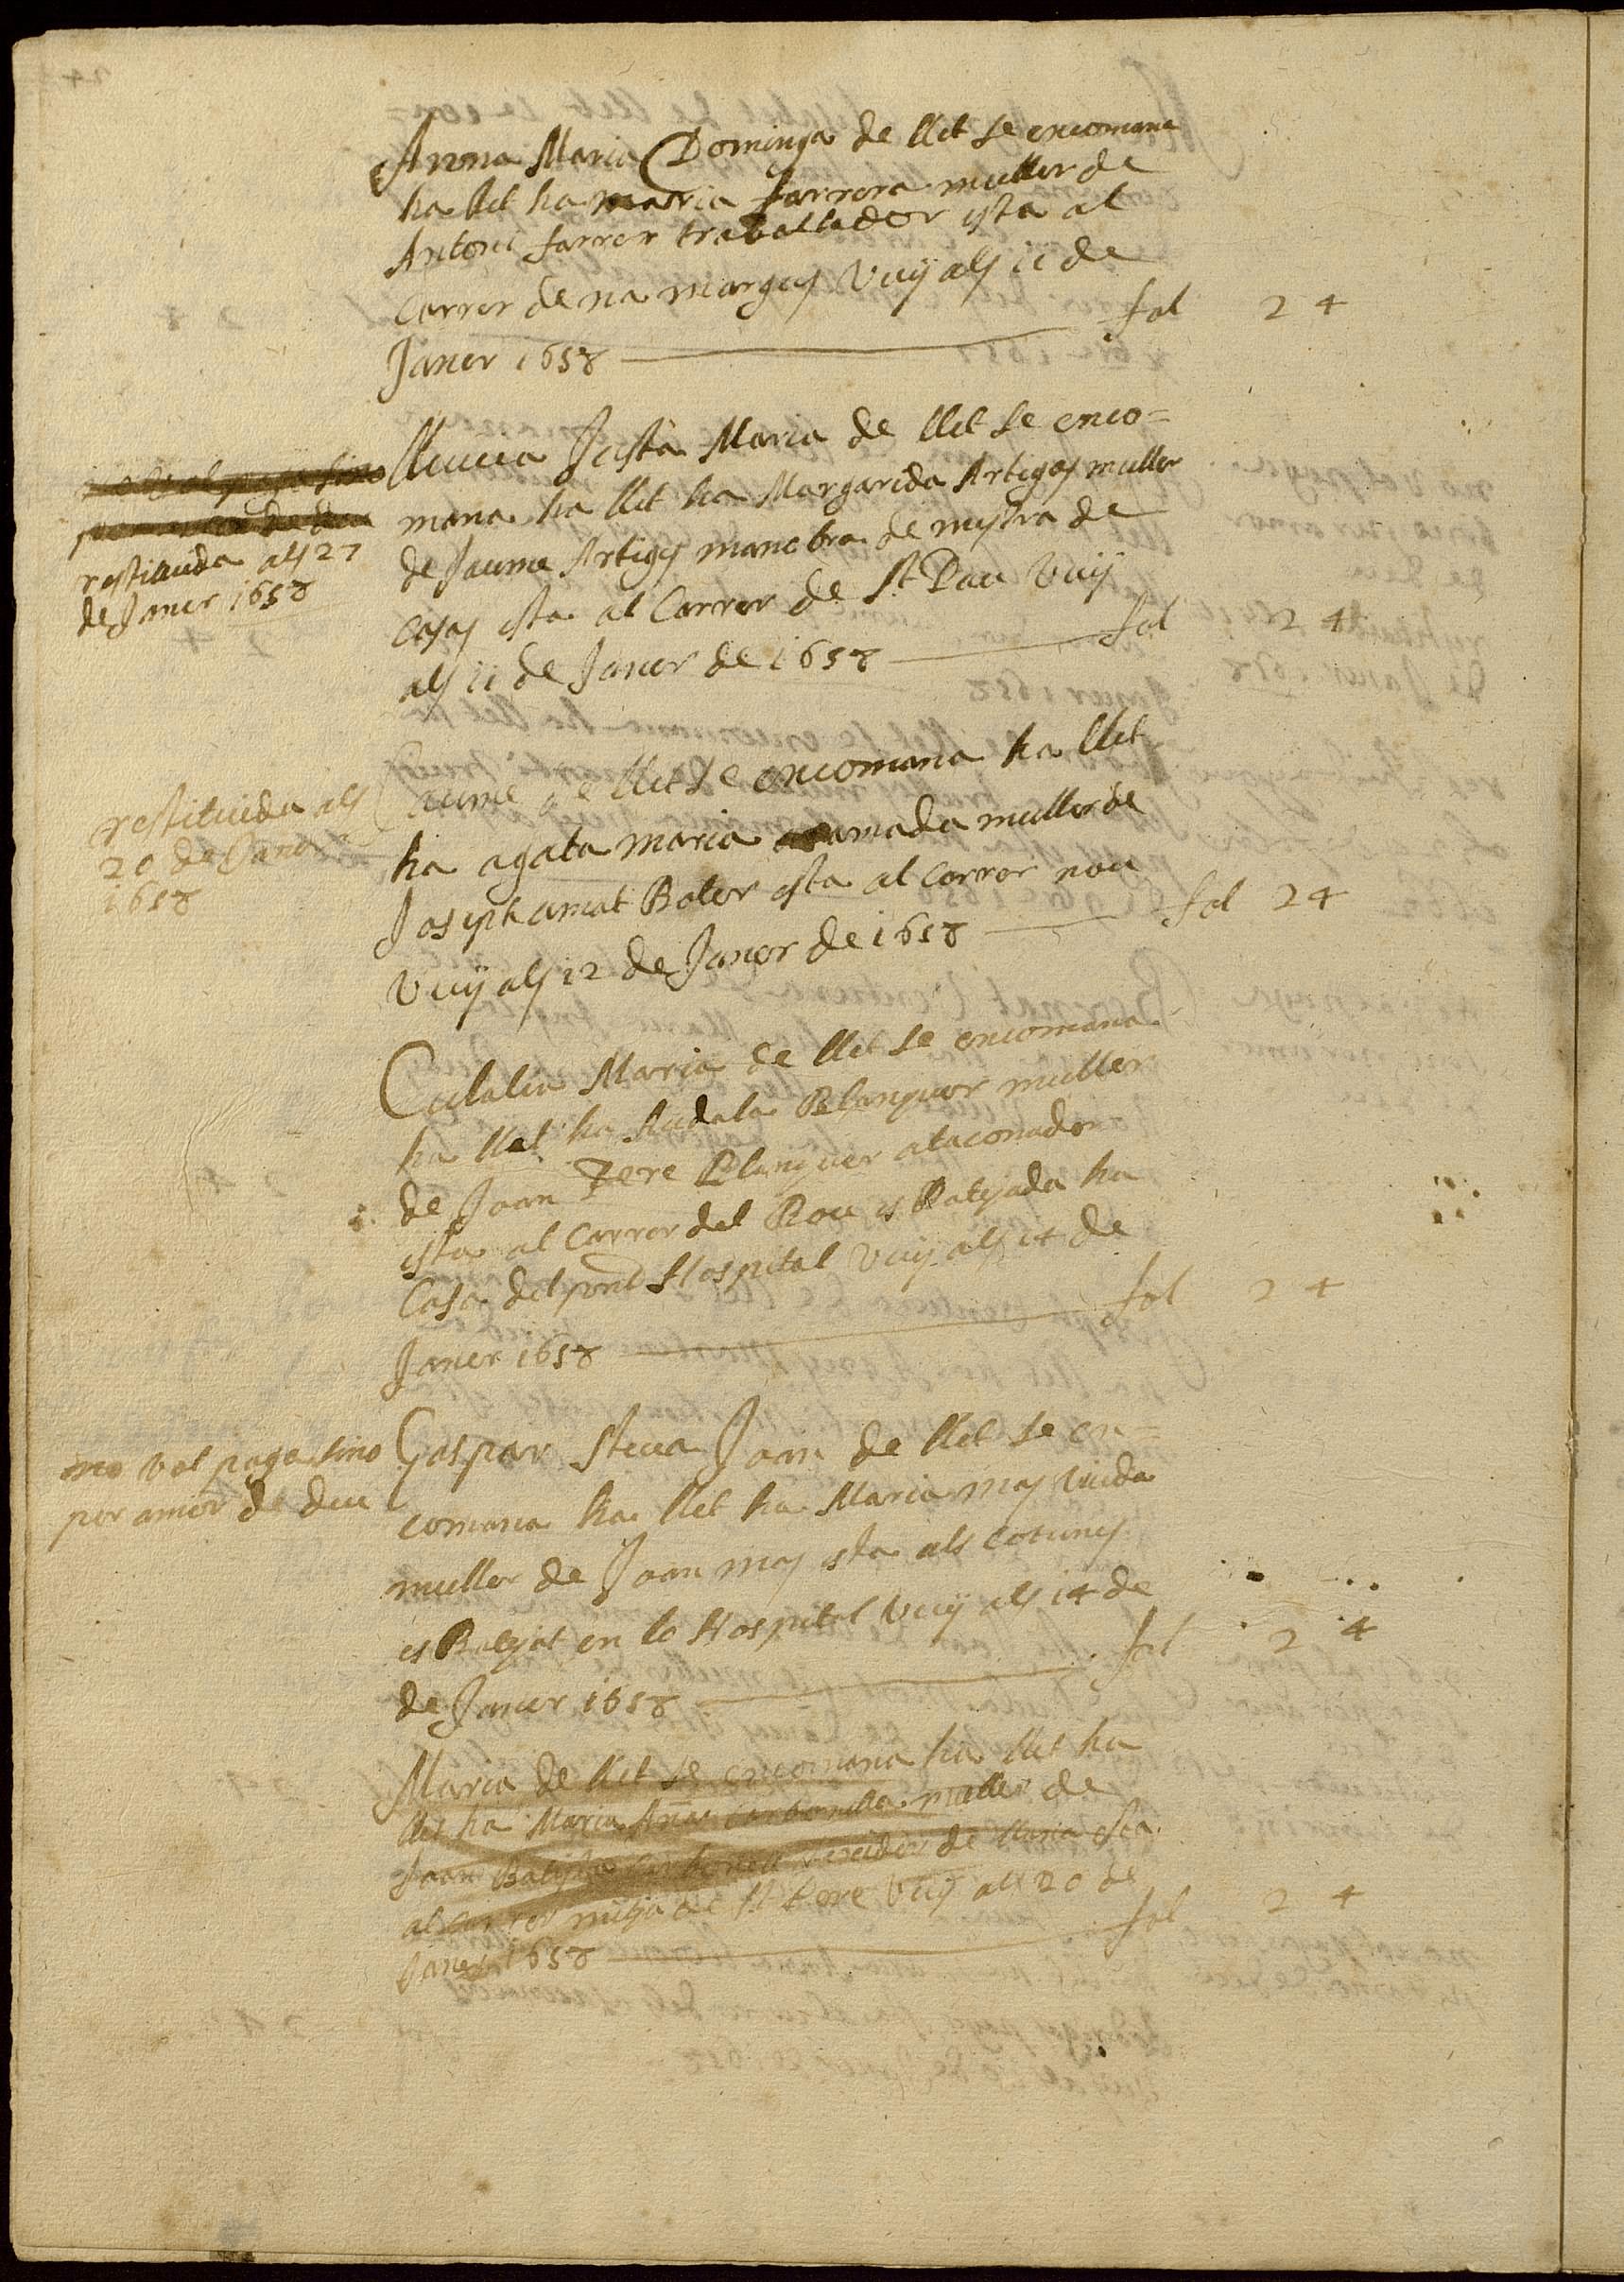 Anna Maria Dominga de llet se encomana
ha llet ha maria farrera muller de
Antoni farrer traballador esta al
Carrer de na margus Vuij als 11 de
Janer 1658 fol 24
Lluçia Justa Maria de llet se enco=
mana ha llet ha Margarida Artigas muller
de Jaume Artigas manobra de mestra de
Casas esta al Carrer de St Pau Vuij
als 11 de Janer de 1658 fol 24
restituida als 27
de Janer 1658
Jaume de llet se encomana ha llet
ha agata maria amada muller de
Joseph amat Boter esta al Carrer nou
Vuij als 12 de Janer de 1658 fol 24
restituida als
20 de Janer
1658
Eulalia Maria de llet se encomana
ha llet ha Blanquer muller
de Joan Pere Blanquer ataconador
esta al Carrer del Rou es Batejada ha
Casa del pnt Hospital Vuij als 14 de
Janer 1658 fol 24
no vol paga sino
per amor de deu
Gaspar Steva Joan de llet se en=
comana ha llet ha Maria mas viuda
muller de Joan mas esta als cotunes
es Batejat en lo Hospital Vuij als 14 de
de Janer 1658 fol 24
Maria de llet se encomana ha llet ha
llet ha Maria Anna Carbonella muller de
Joan Batista Carbonell texidor de llana esta
al Carrer mitja de St Pere Vuij als 20 de
Janer 1658 fol 24